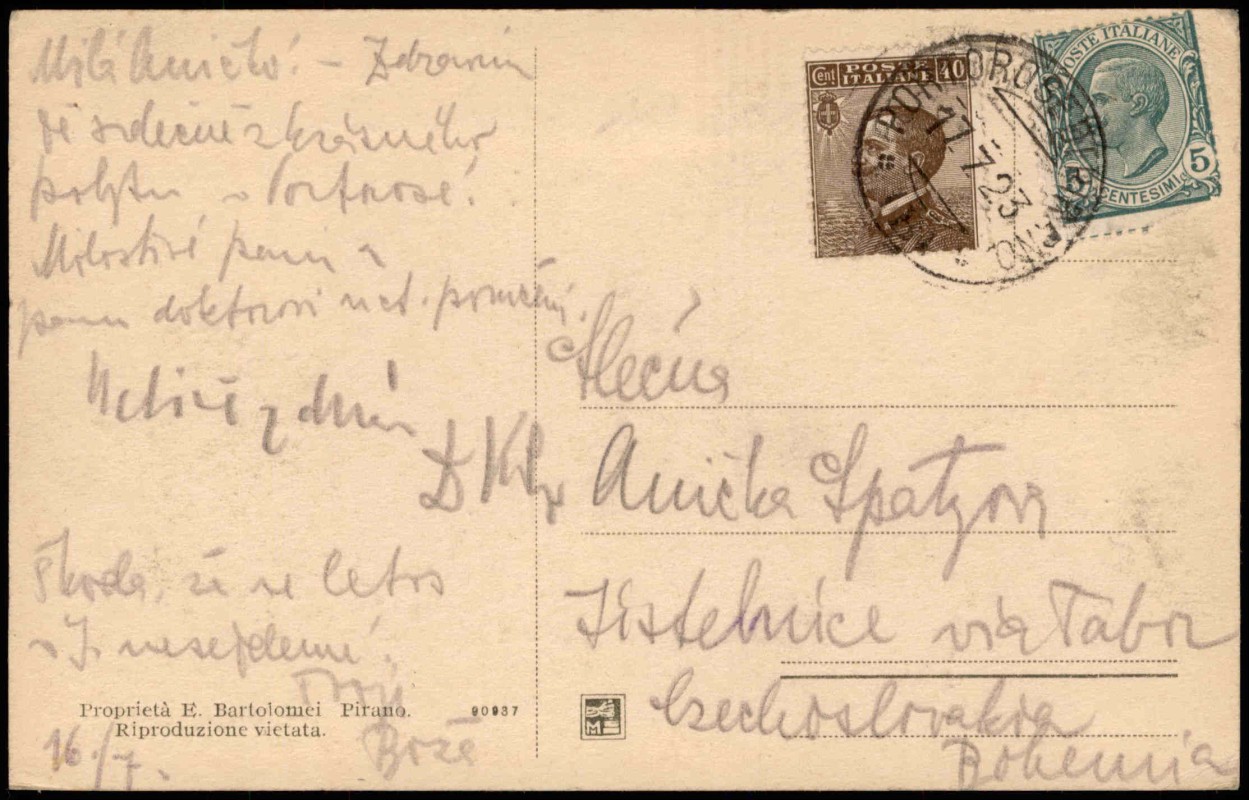 Milá Aničko! – Zdravím
Tě srdečně z krásného
pobytu v Portorose!
Milostivé paní a
panu doktorovi uct. poručení.
Škoda, že se letos
v J. nesejdeme!
Tvoje
Boža
16./7.
Proprietà E. Bartolomei Pirano.
Riproduzione vietata.
90937
Cent POSTE ITALIANE 40
POSTE ITALIANE
5 CENTESIMI 5
PORTOROSE
17 7 23
Slečna
Anička Spatzova
Jistebnice via Tabor
Czechoslovakia
Bohemia
M